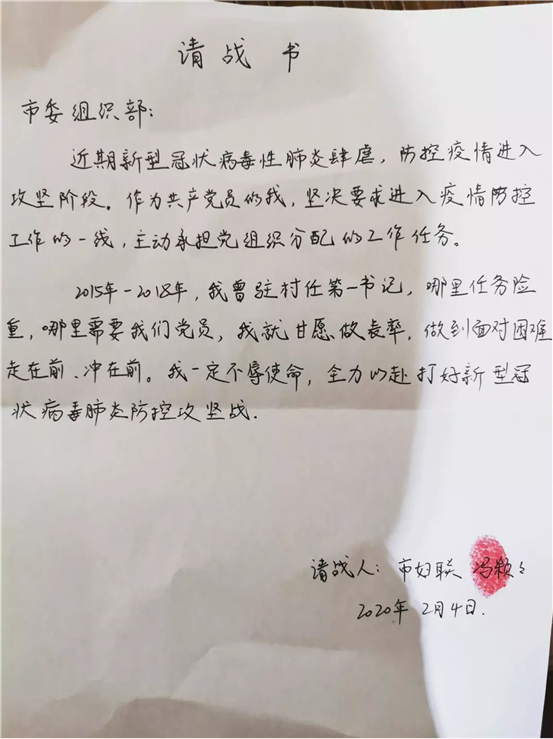 请战书
市委组织部：
近期新型冠状病毒性肺炎肆虐，防控疫情进入
攻坚阶段。作为共产党员的我，坚决要求进入疫情防控
工作的一线，主动承担党组织分配的工作任务。
2015年-2018年，我曾驻村任第一书记，哪里任务险
重，哪里需要我们党员，我就甘愿做表率，做到面对困难
走在前、冲在前。我一定不辱使命，全力以赴打好新型冠
状病毒肺炎防控攻坚战.
请战人：市妇联 冯颖
2020年2月4日.